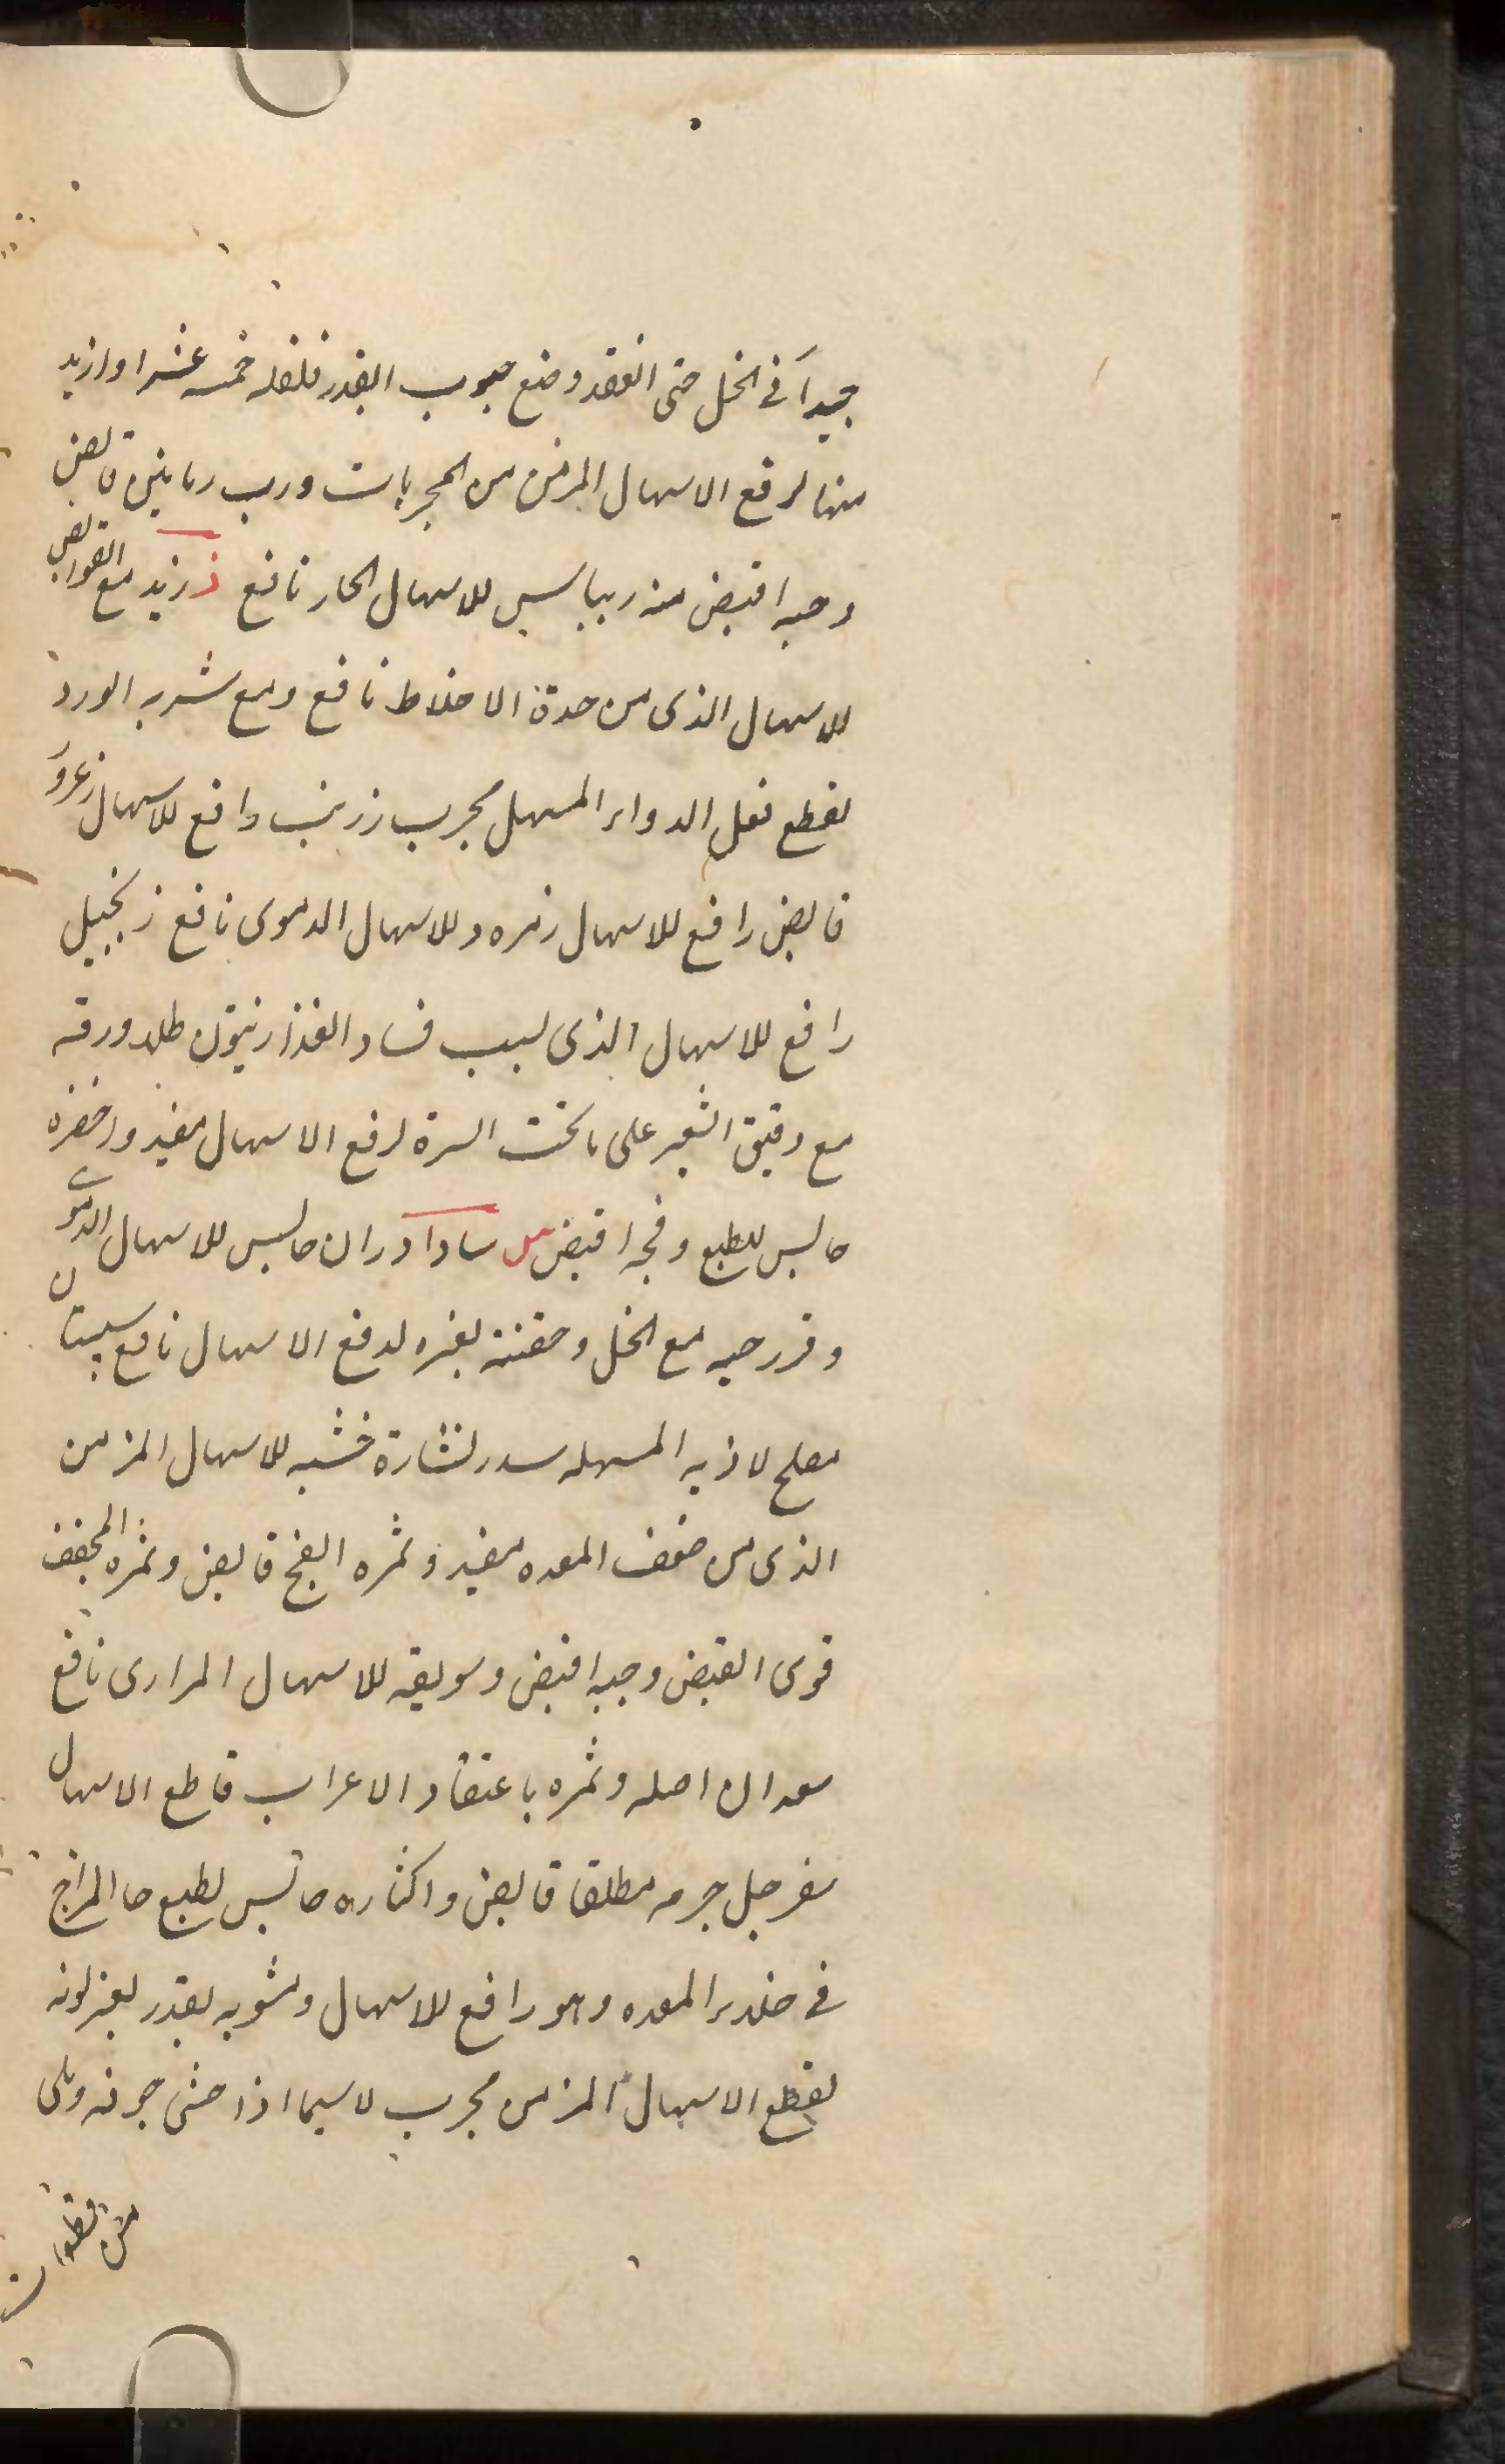 جيداً فى الخل حتى انعقد وضع حبوب القدر فلفله خمسه عشرا وازيد
منها لرفع الاسهال المزمن من المجربات ورب رمانين قابض
وحبه اقبض منه ريباس للاسهال الحار نافع ز زبد مع القوابض
للاسهال الذى من حدة الاخلاط نافع ومع شربه الورد
لقطع فعل الدواء المسهل مجرب زرنب دافع للاسهال زعرور
قابض رافع للاسهال زمرد وللاسهال الدموى نافع زنجبيل
رافع للاسهال الذى لسبب فساد الغذا زيتون طلاء ورقه
مع دقيق الشعير على ما تحت السرة لرفع الاسهال مفيد واخضره
حابس للطبع وفجه اقبض س سادا دران حابس للاسهال الدموى
و فرزجه مع الخل وحقنته لغيره لدفع الاسهال نافع سپستان
مصلح لاذيه المسهله سدر نشارة خشبه للاسهال المزمن
الذى من ضعف المعده مفيد وثمره الفج قابض وثمره المجفف
قوى القبض وحبه اقبض وسويقه للاسهال المرارى نافع
سعدان اصله وثمره باعتقاد الاعراب قاطع الاسهال
سفرجل جرمه مطلقا قابض واكثاره حابس لطبع حا المزاج
فى خلاء المعده وهو رافع للاسهال ومشويه بقدر يغير لونه
لقطع الاسهال المزمن مجرب لاسيما اذا حشى جوفه وملى